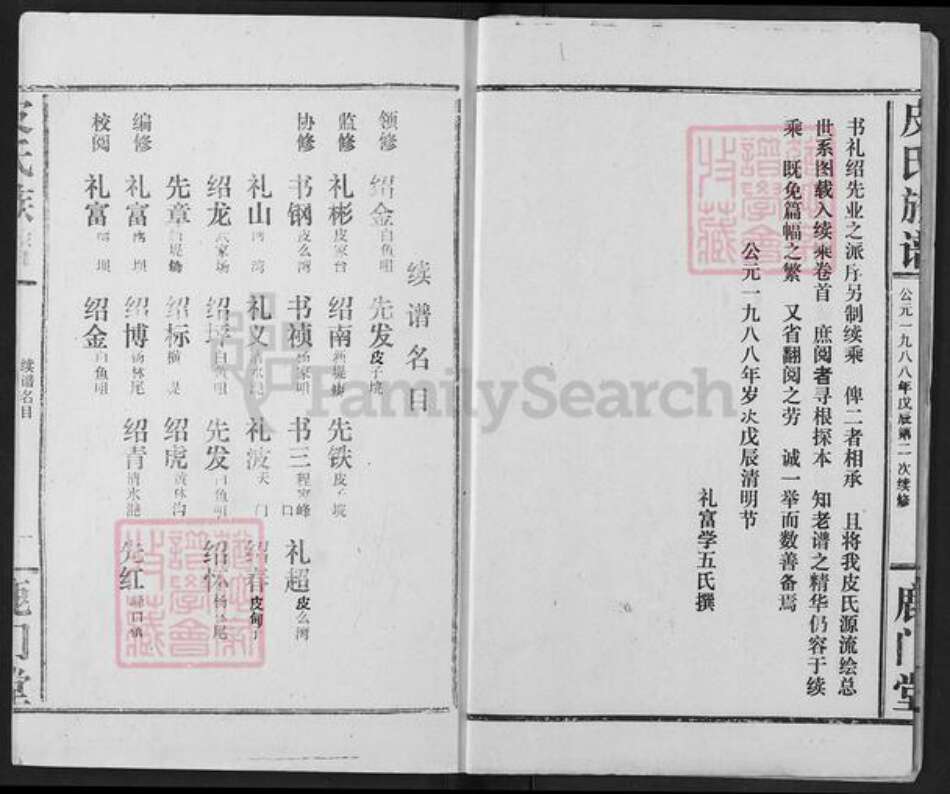 皮氏族谱
公元一九八八年戊辰第二次续修
鹿门堂
书礼绍先业之派序另制续乘 俾二者相承 且将我皮氏源流绘总
世系图载入续乘卷首 庶阅者寻根探本 知老谱之精华仍容于续
乘 既免篇幅之繁 又省翻阅之劳 诚一举而数善备焉
公元一九八八年岁次戊辰清明节
礼富学五氏撰
续谱名目
领修 绍金白鱼咀 先发皮子境
监修 礼彬皮家台 绍南 先铁
协修 书钢皮么湾 书祯杨家咀 书三程家峰口 礼超皮么湾
礼山 湾 礼义 礼波天门 绍春
绍龙 家场 绍 白鱼咀 先发白鱼咀 绍怀杨林尾
先章 绍标横堤 绍虎黄林沟
编修 礼富 坝 绍博杨林尾 绍青 先红
校阅 礼富 坝 绍金白鱼咀
续谱名目
鹿门堂
FamilySearch